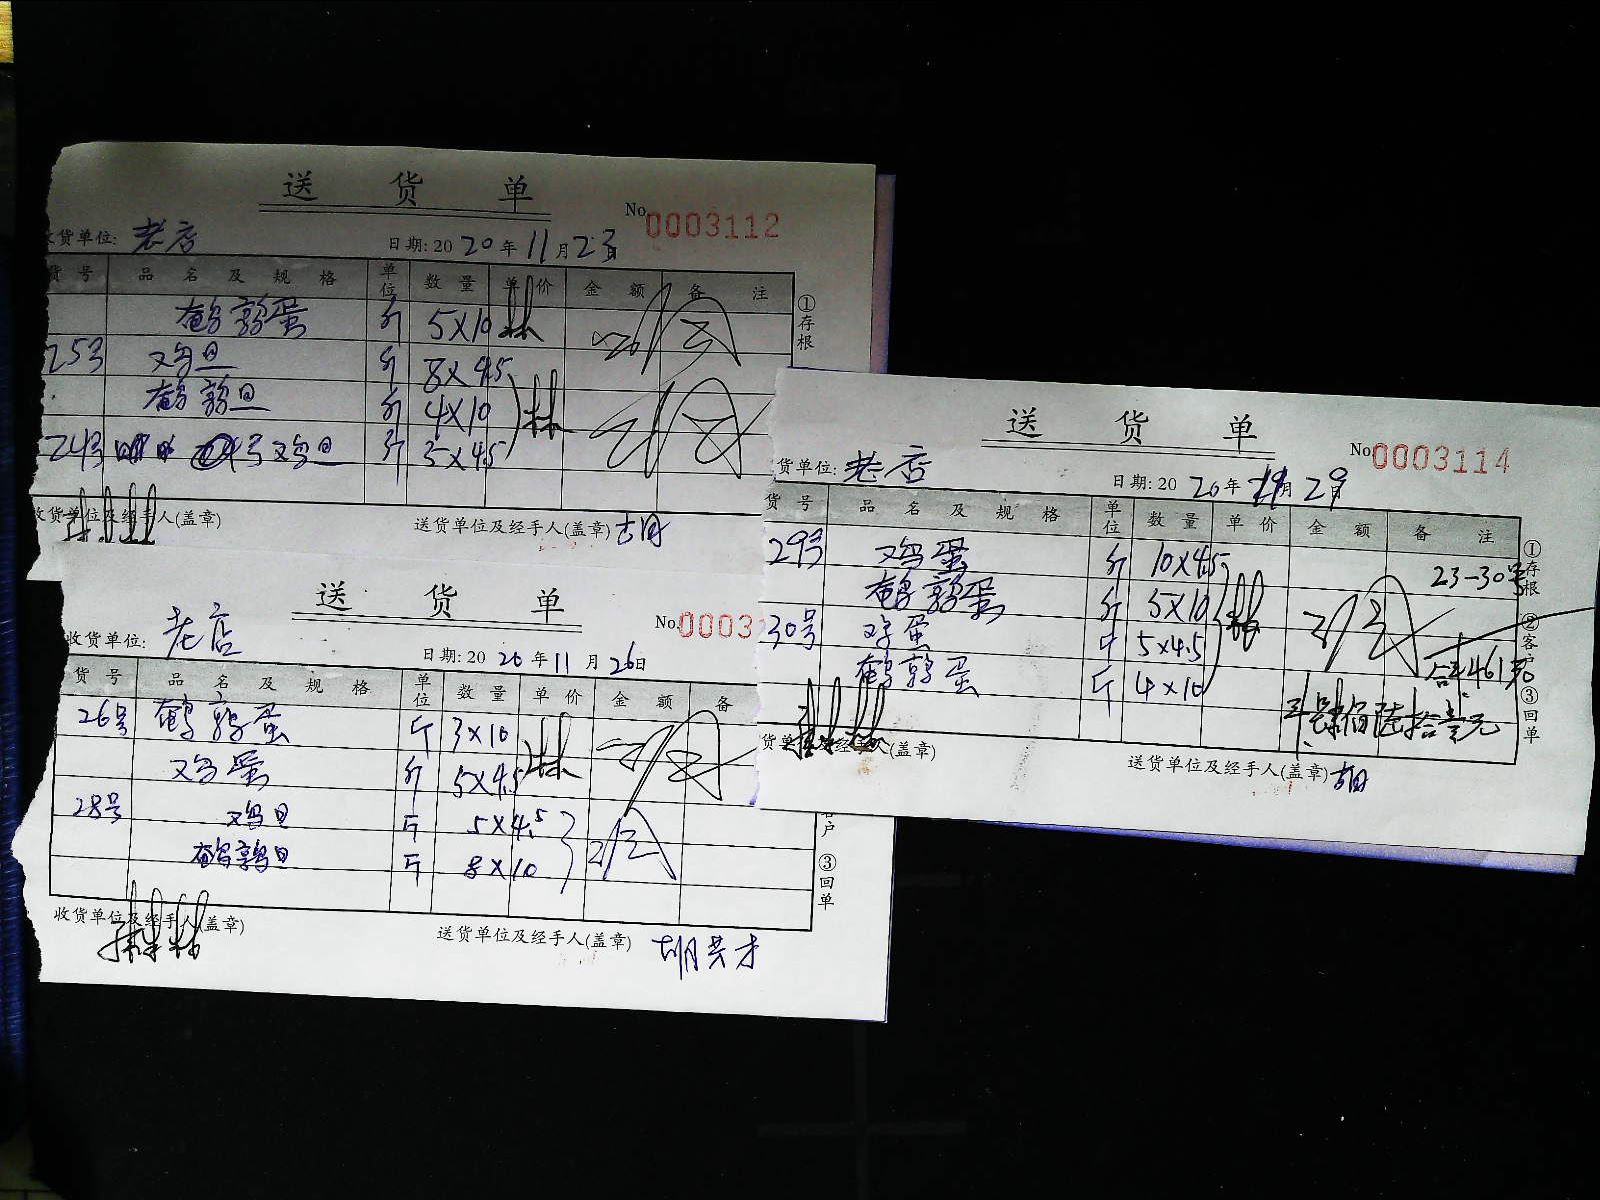 送 货 单
No 0003112
货单位: 老店 日期: 20 20 年 11 月 23日
货 号 品 名 及 规 格 单位 数 量 单 价 金 额 备 注
鹌鹑蛋 斤 5×10
25号 鸡旦 斤 8×4.5
鹌鹑旦 斤 4×10
24号 鸡旦 斤 5×4.5
货单位及经手人(盖章) 送货单位及经手人(盖章) 古月
①存根
送 货 单
No. 0003
收货单位: 老店 日期: 20 20 年 11 月 26日
货 号 品 名 及 规 格 单位 数 量 单 价 金 额 备
26号 鹌鹑蛋 斤 3×10
鸡蛋 斤 5×4.5
28号 鸡旦 斤 5×4.5
鹌鹑旦 斤 8×10
收货单位及经手人(盖章) 送货单位及经手人(盖章) 胡共才
户 ③回单
送 货 单
No 0003114
货单位: 老店 日期: 20 20 年 11月 29日
货 号 品 名 及 规 格 单位 数 量 单 价 金 额 备 注
29号 鸡蛋 斤 10×4.5 23-30号
鹌鹑蛋 斤 5×10
30号 鸡蛋 斤 5×4.5
鹌鹑蛋 斤 4×10 合计461元
肆佰陆拾壹元
货单位及经手人(盖章) 送货单位及经手人(盖章) 胡
①存根 ②客户 ③回单